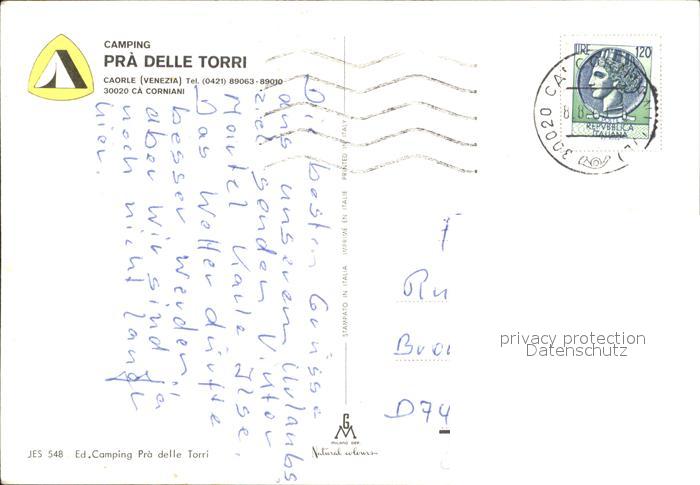 CAMPING
PRÀ DELLE TORRI
CAORLE (VENEZIA) Tel. (0421) 89063-89010
30020 CÀ CORNIANI
Die besten Grüsse
aus unserem Urlaubs
ziel senden
Das Wetter dürfte
besser werden;
aber wir sind ja
noch nicht lange
hier.
STAMPATO IN ITALIA IMPRIMÉ EN ITALIE PRINTED IN ITALY
LIRE 120
REPVBBLICA
ITALIANA
30020
privacy protection
Datenschutz
D74
GM
MILANO DEP.
Natural colours
JES 548 Ed.Camping Prà delle Torri